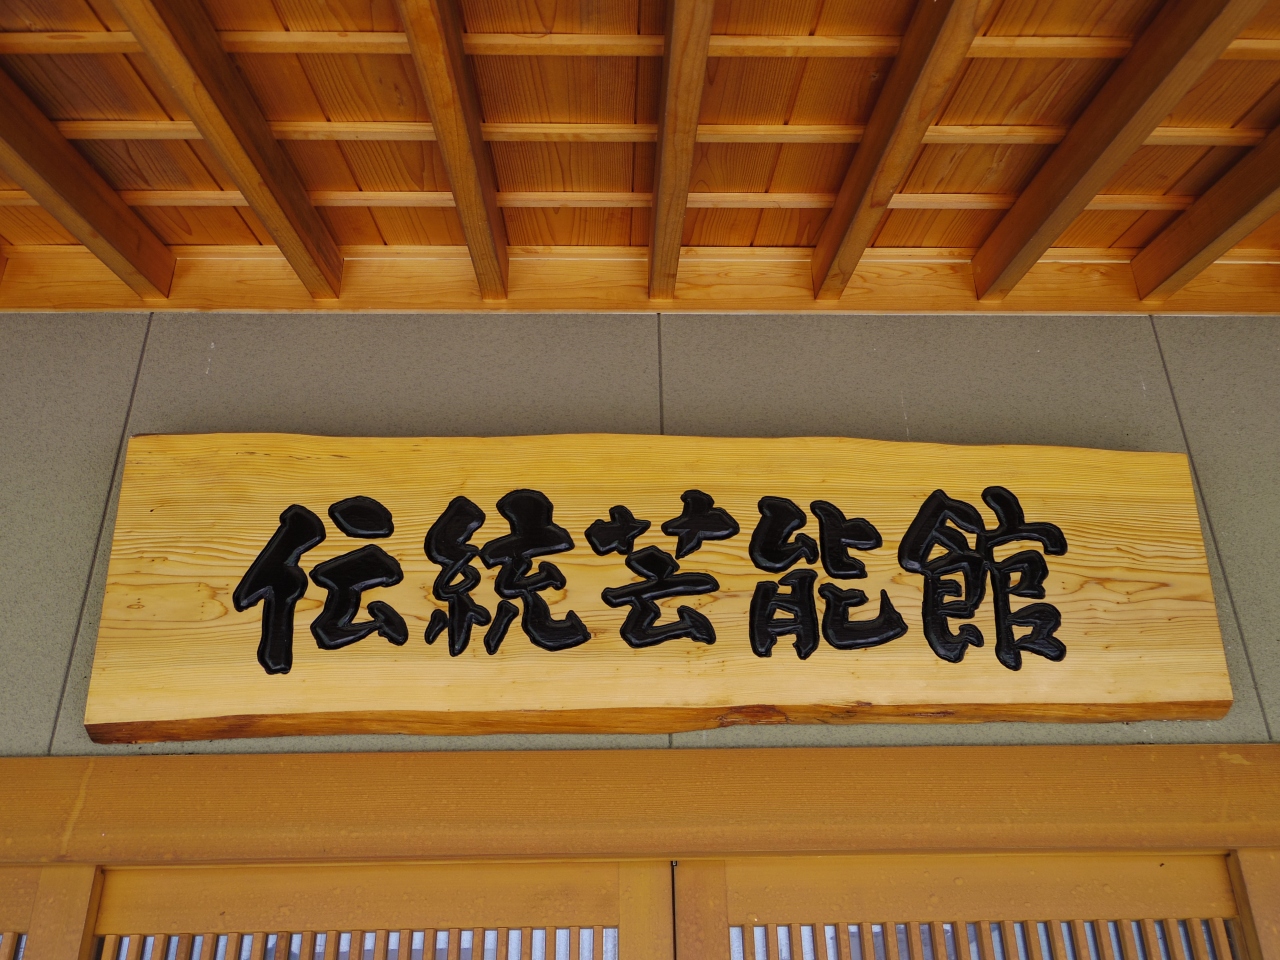 伝統芸能館